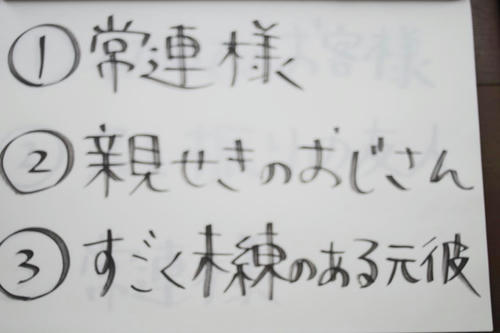 ① 常連様
② 親せきのおじさん
③ すごく未練のある元彼